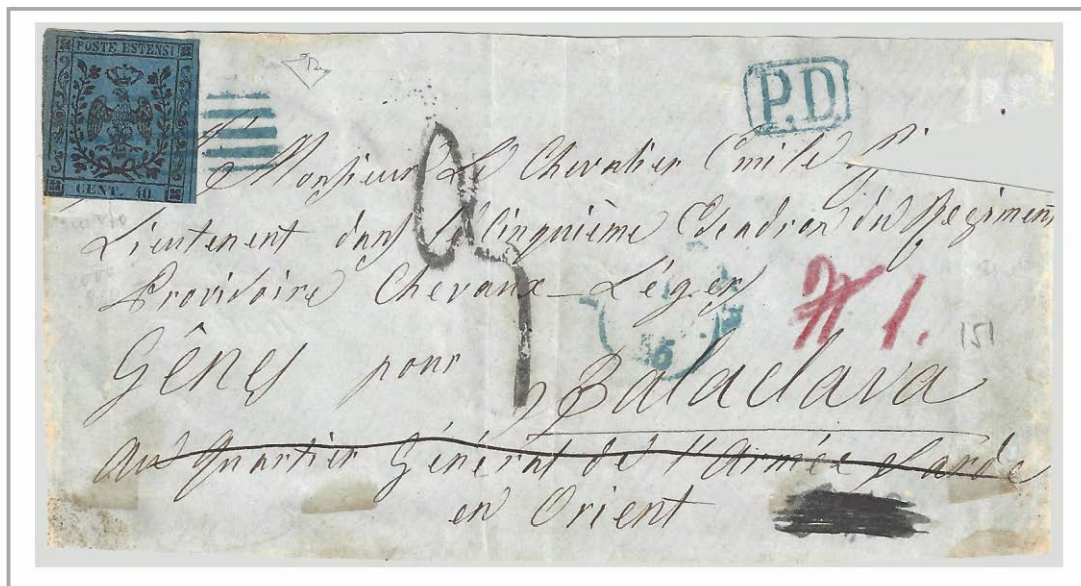 POSTE ESTENSI
CENT. 40
P.D.
Monsieur Le Chevalier Emile
Lieutenent dans le Cinquième Escadron du Regiment
Provisoire Chevaux-Léger
Gênes pour Balaclava
au Quartier Général de l'Armée Sarde
en Orient
1.
151